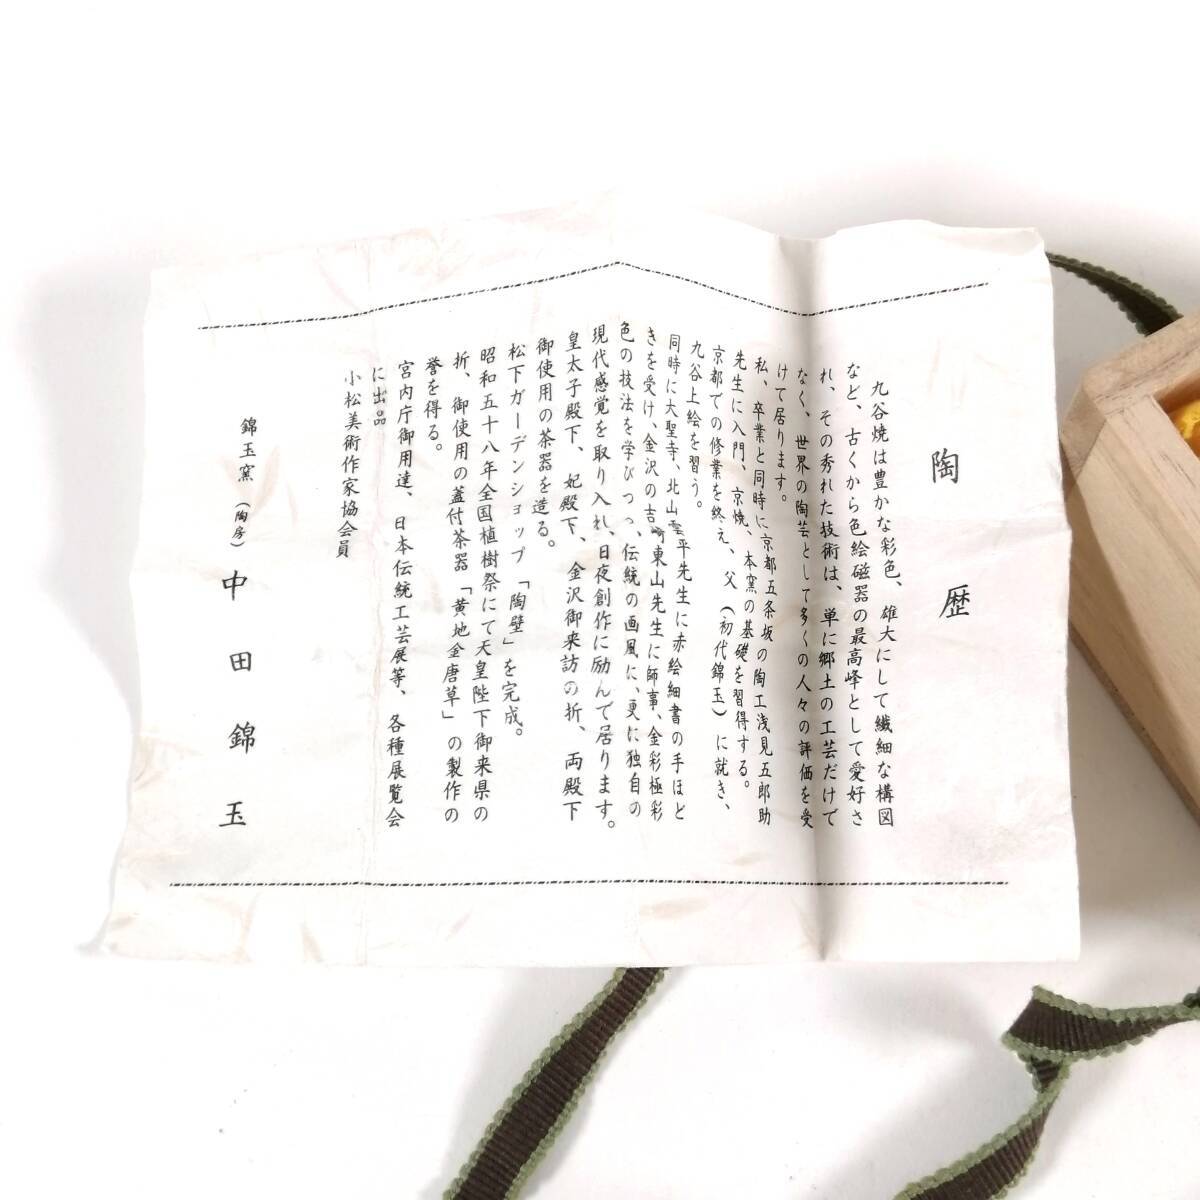 陶歴
九谷焼は豊かな彩色、雄大にして繊細な構図
など、古くから色絵磁器の最高峰として愛好さ
れ、その秀れた技術は、単に郷土の工芸だけで
なく、世界の陶芸として多くの人々の評価を受
けて居ります。
私、卒業と同時に京都五条坂の陶工浅見五郎助
先生に入門、京焼、本窯の基礎を習得する。
京都での修業を終え、父(初代錦玉)に就き、
九谷上絵を習う。
同時に大聖寺、北山雲平先生に赤絵細書の手ほど
きを受け、金沢の吉崎東山先生に師事、金彩極彩
色の技法を学びつつ、伝統の画風に、更に独自の
現代感覚を取り入れ、日夜創作に励んで居ります。
皇太子殿下、妃殿下、金沢御来訪の折、両殿下
御使用の茶器を造る。
松下ガーデンショップ「陶壁」を完成。
昭和五十八年全国植樹祭にて天皇陛下御来県の
折、御使用の蓋付茶器「黄地金唐草」の製作の
誉を得る。
宮内庁御用達、日本伝統工芸展等、各種展覧会
に出品
小松美術作家協会員
錦玉窯(陶房)中田錦玉